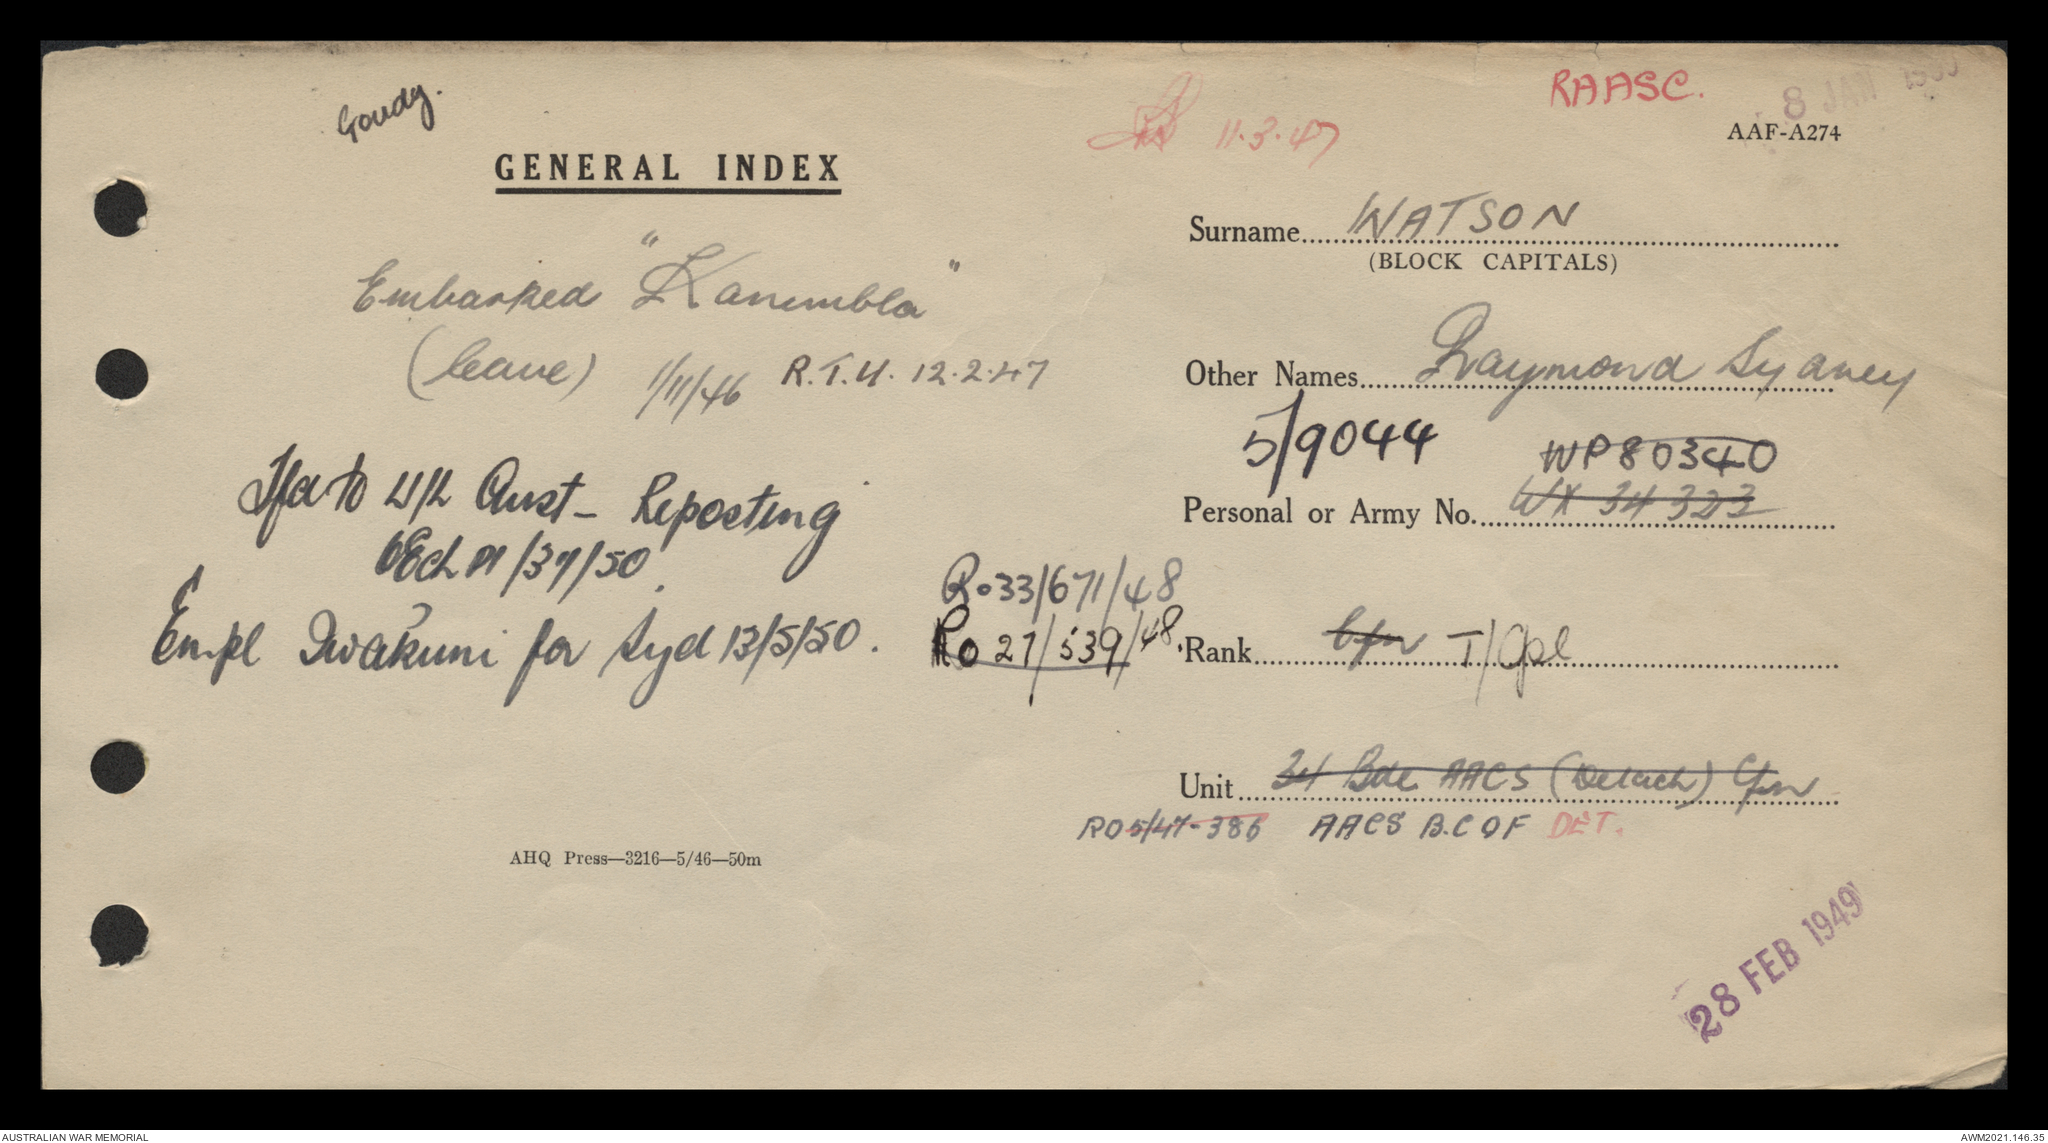 Goudy.
11.3.47
RAASC.
8 JAN
AAF-A274
GENERAL INDEX
Surname WATSON
(BLOCK CAPITALS)
Embarked "Kanimbla"
(leave) 1/11/46 R.T.U. 12.2.47
Other Names Raymond Sydney
5/9044 WP80340
Personal or Army No. WX 34323
Tfd to Y/L Aust - Reposting
2Ech /37/50
Empl Iwakuni for Syd 13/5/50.
Ro 33/671/48
Ro 27/539/48
Rank Cfn T/Cpl
Unit 34 Bde AACS (Detach) Cfn
RO 5/47-386 AACS B.C.O.F DET.
AHQ Press—3216—5/46—50m
28 FEB 1949
AUSTRALIAN WAR MEMORIAL
AWM2021.146.35